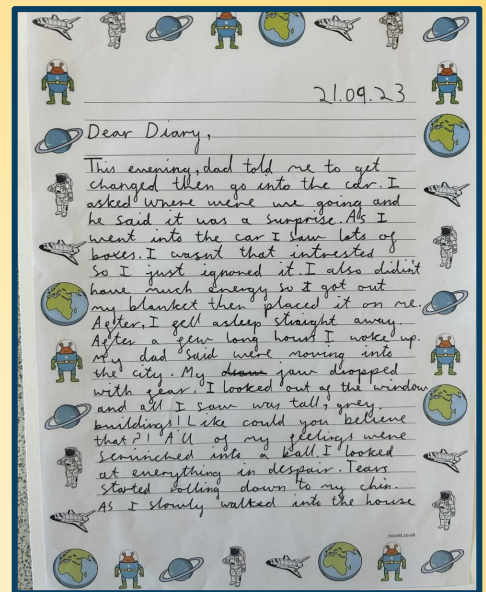 21.09.23
Dear Diary,
This evening, dad told me to get
changed then go into the car. I
asked where were we going and
he said it was a surprise. As I
went into the car I saw lots of
boxes. I wasnt that intrested
so I just ignored it. I also didint
have much energy so I got out
my blanket then placed it on me.
After, I fell asleep straight away
After a few long hours I woke up.
My dad said were moving into
the city. My jaw dropped
with fear. I looked out of the window
and all I saw was tall, grey
buildings! Like could you believe
that?! All of my feelings were
scruinched into a ball. I looked
at everything in despair. Tears
started rolling down to my chin.
As I slowly walked into the house